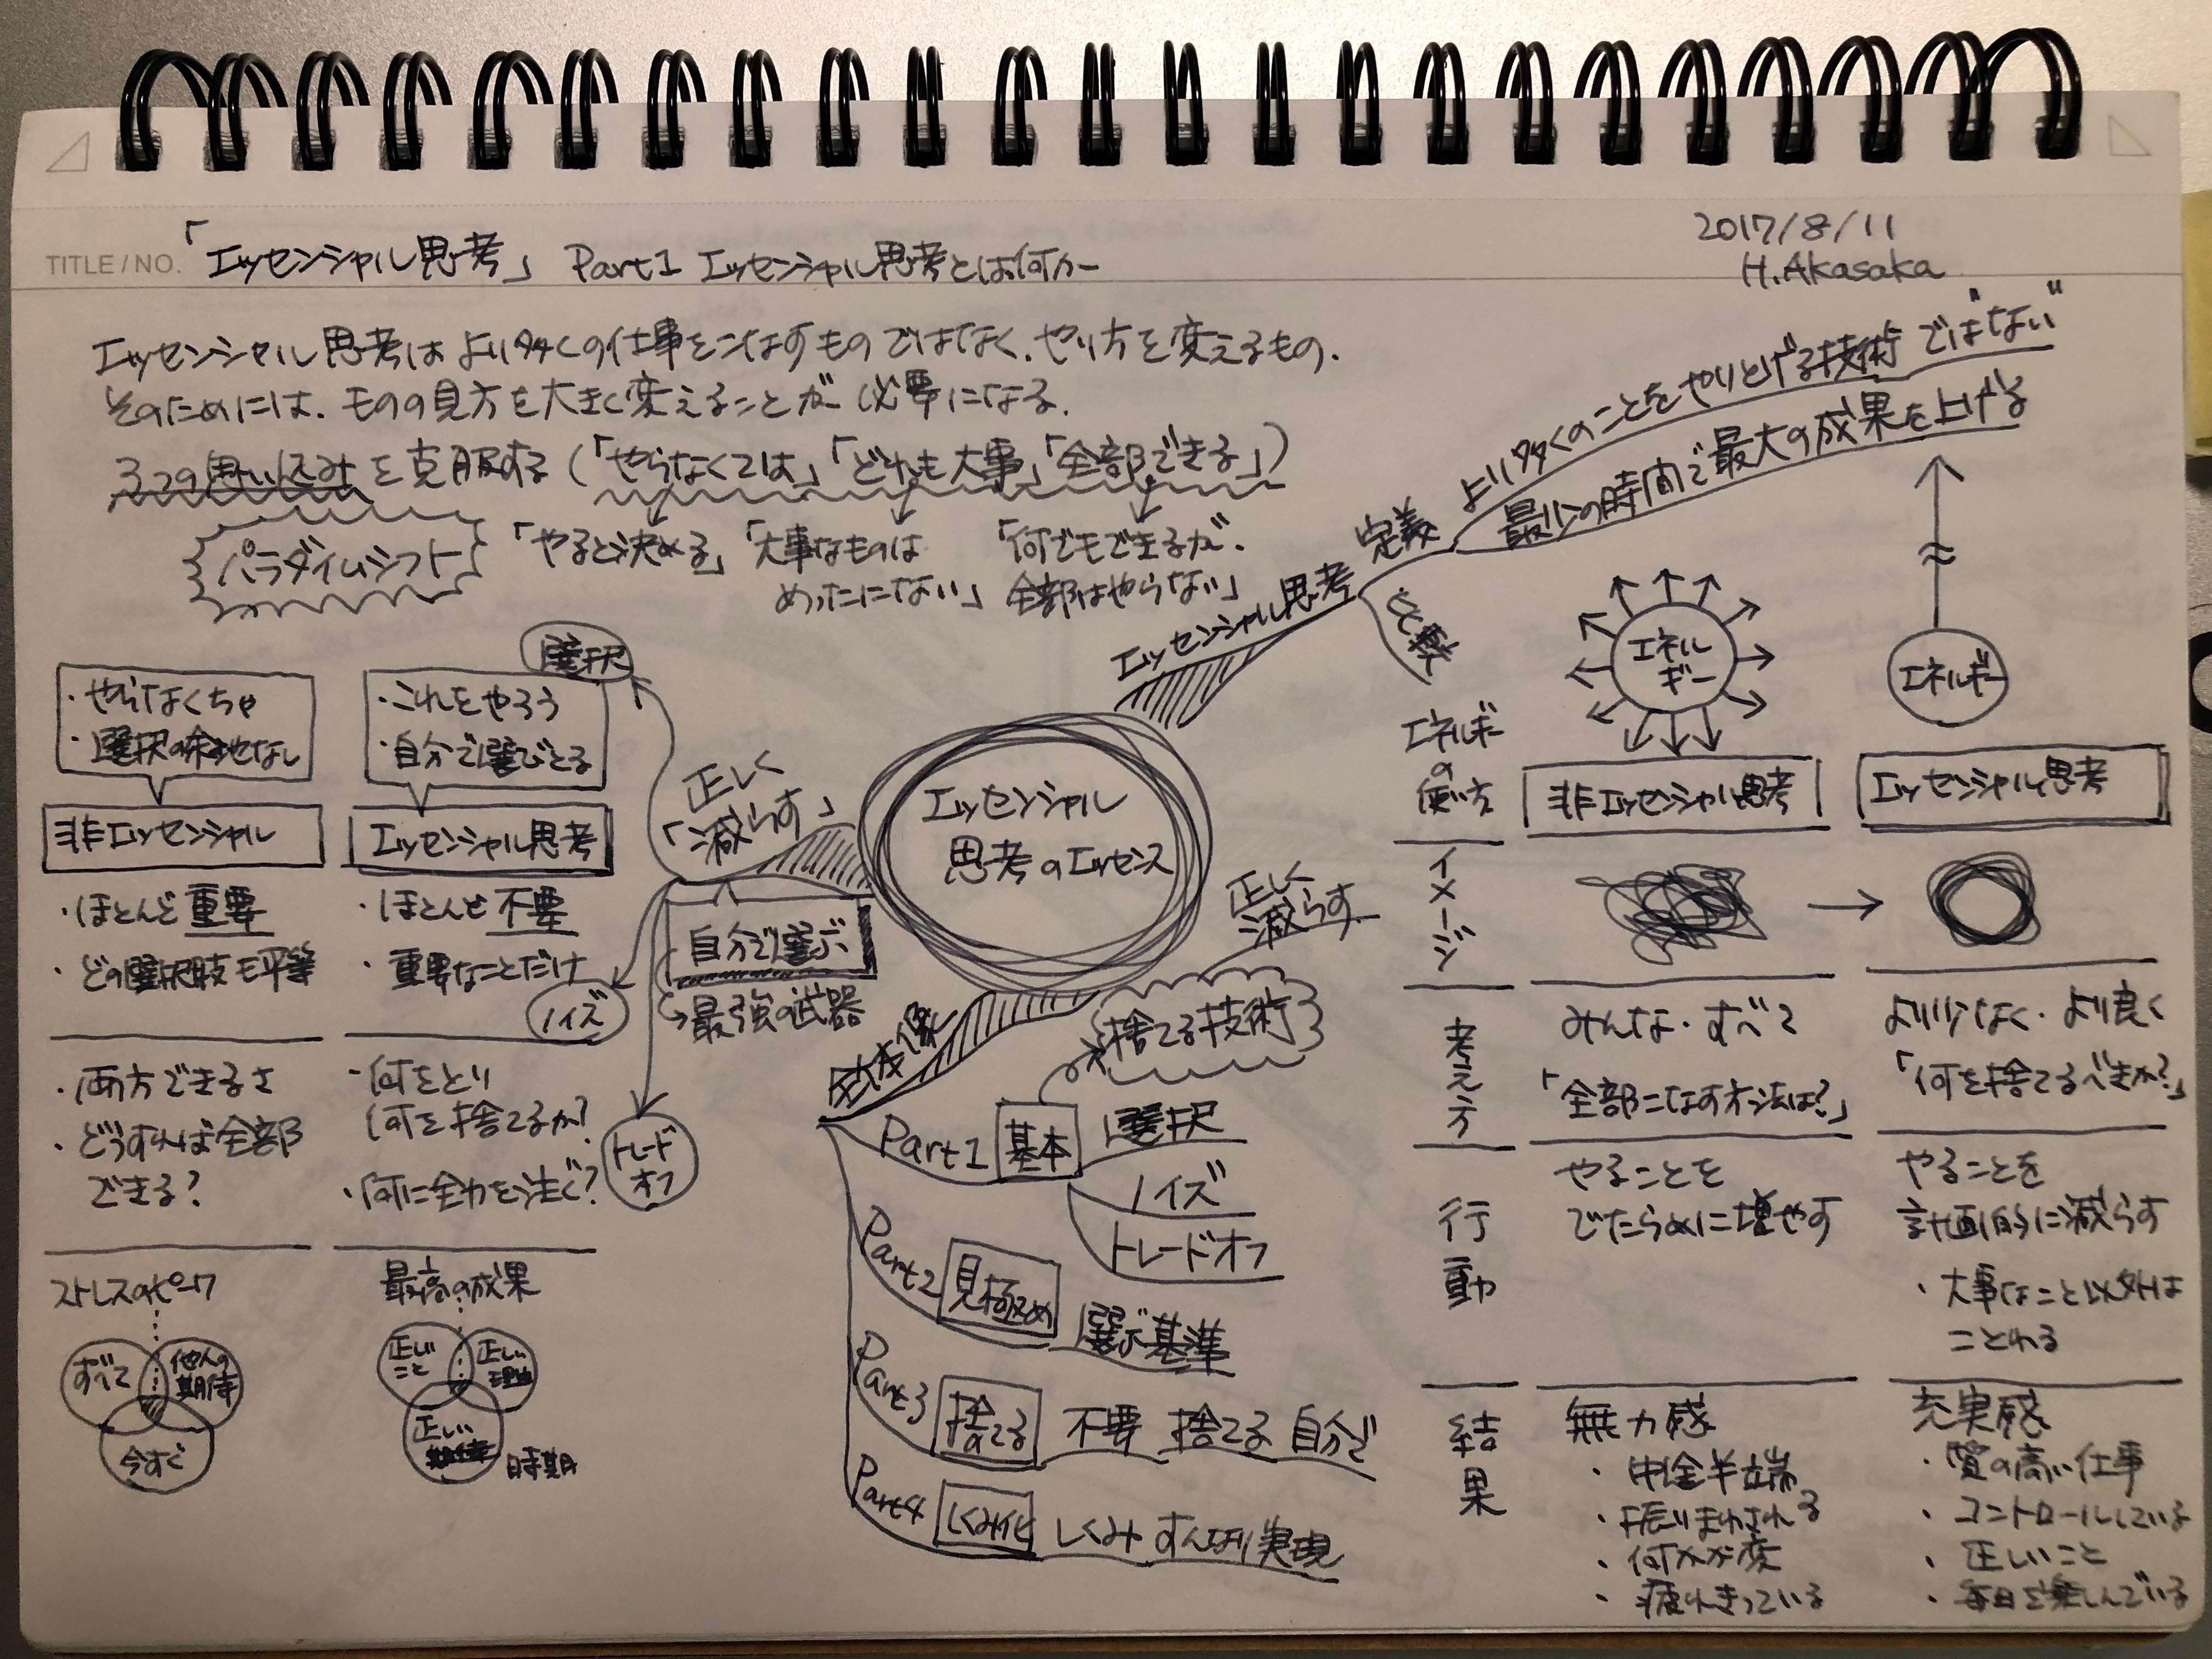 TITLE / NO.
「エッセンシャル思考」 Part1 エッセンシャル思考とは何か
2017/8/11
H.Akasaka
エッセンシャル思考は より多くの仕事をこなすものではなく、やり方を変えるもの.
そのためには、ものの見方を大きく変えることが 必要になる.
3つの思い込みを克服する (「やらなくては」「どれも大事」「全部できる」)
パラダイムシフト
「やると決める」
「大事なものは
めったにない」
「何でもできるが、
全部はやらない」
エッセンシャル
思考のエッセンス
エッセンシャル思考
定義
より多くのことをやりとげる技術 では"ない"
最少の時間で最大の成果を上げる
比較
エネルギー
の
使い方
エネル
ギー
エネルギー
非エッセンシャル思考
エッセンシャル思考
イメージ
考え方
みんな・すべて
「全部こなす方法は?」
より少なく・より良く
「何を捨てるべきか?」
行動
やることを
でたらめに増やす
やることを
計画的に減らす
・大事なこと以外は
ことわる
結果
無力感
・中途半端
・振りまわされる
・何かが変
・疲れきっている
充実感
・質の高い仕事
・コントロールしている
・正しいこと
・毎日を楽しんでいる
正しく
「減らす」
自分で選ぶ
最強の武器
選択
・やらなくちゃ
・選択の余地なし
・これをやろう
・自分で選びとる
非エッセンシャル
エッセンシャル思考
・ほとんど重要
・どの選択肢も平等
・ほとんど不要
・重要なことだけ
ノイズ
・両方できるさ
・どうすれば全部
できる?
・何をとり
何を捨てるか?
・何に全力を注ぐ?
トレード
オフ
ストレスのピーク
すべて
他人の
期待
今すぐ
最高の成果
正しい
こと
正しい
理由
正しい
時期
全体像
正しく
減らす
捨てる技術
Part1 基本
選択
ノイズ
トレードオフ
Part2 見極め 選ぶ基準
Part3 捨てる 不要 捨てる 自分で
Part4 しくみ化 しくみ すんなり実現